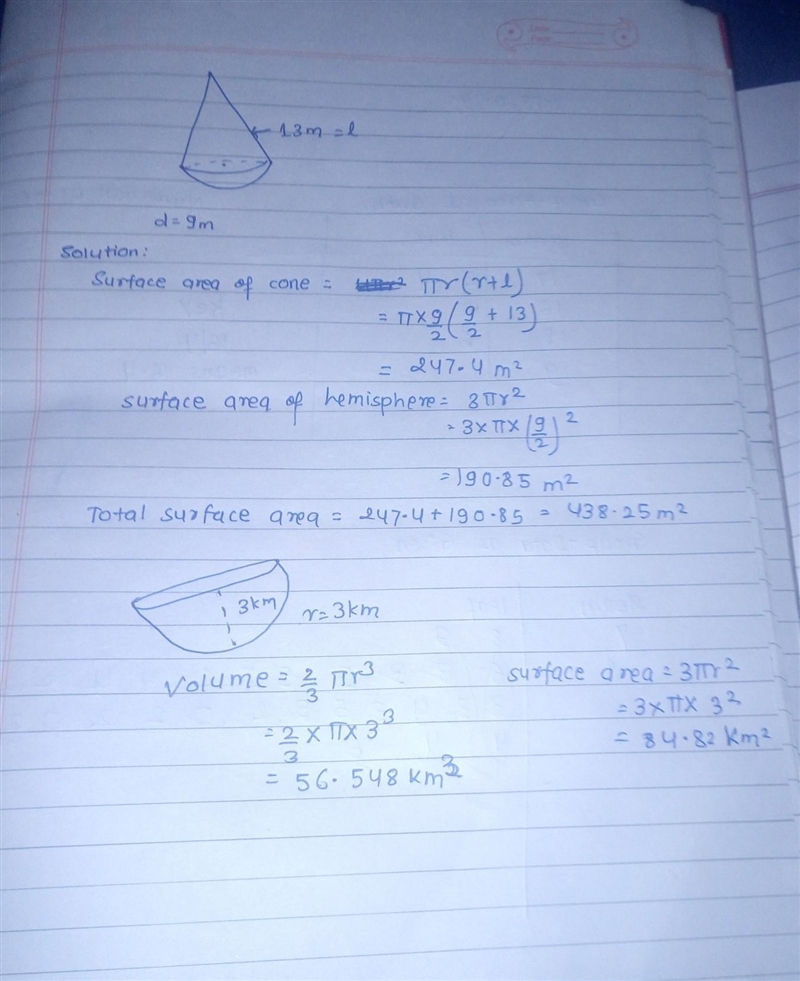 13m = l
d = 9m
Solution:
Surface area of cone = πr(r+l)
= π×9/2(9/2 + 13)
= 247.4 m²
surface area of hemisphere = 3πr²
= 3×π×(9/2)²
= 190.85 m²
Total surface area = 247.4+190.85 = 438.25m²
3km r=3km
Volume = 2/3 πr³
= 2/3 × π× 3³
= 56.548 km³
surface area = 3πr²
= 3×π× 3²
= 84.82 Km²